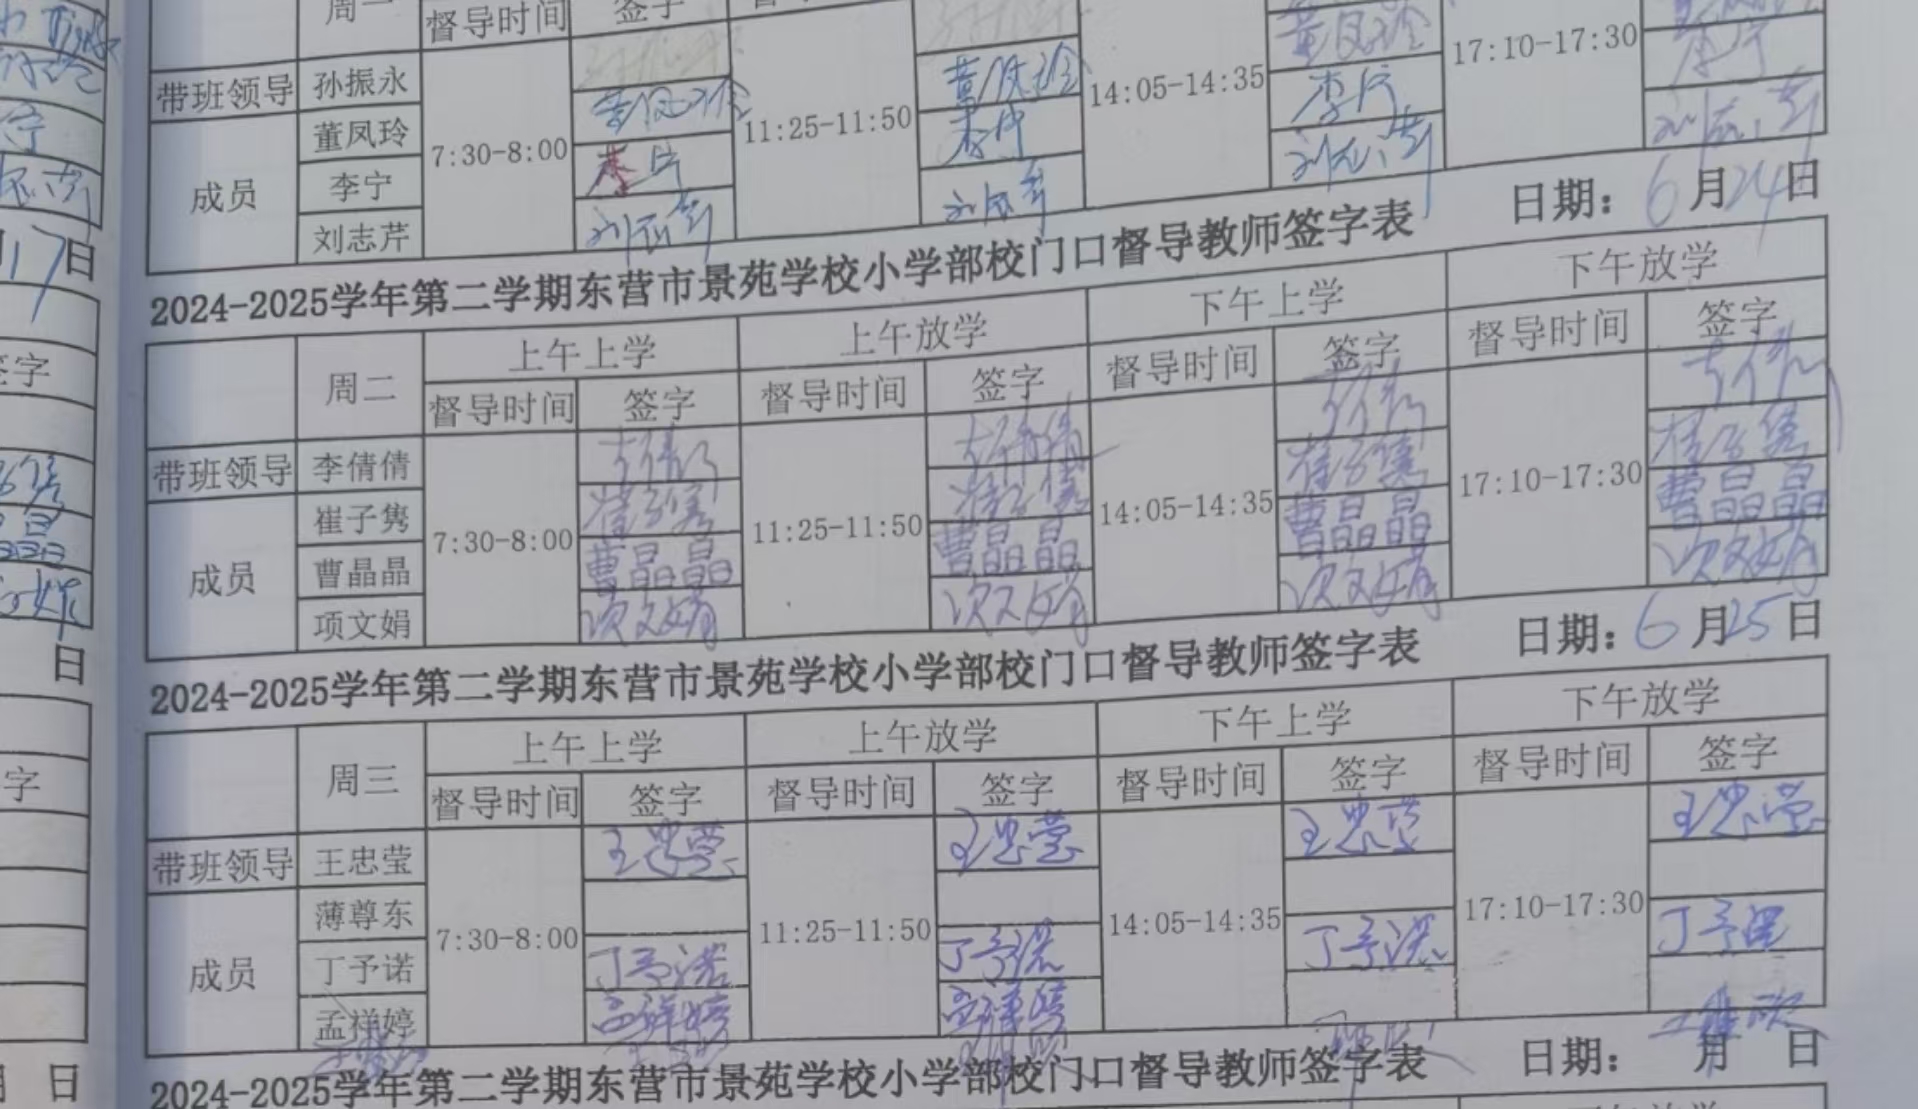 周一 督导时间 签字
带班领导 孙振永 7:30-8:00 11:25-11:50 14:05-14:35 17:10-17:30
成员 董凤玲 董凤玲 董凤玲 董凤玲
李宁 李宁 李宁 李宁 李宁
刘志芹 刘志芹 刘志芹 刘志芹 刘志芹
17日
2024-2025学年第二学期东营市景苑学校小学部校门口督导教师签字表 日期: 6月24日
周二 上午上学 上午放学 下午上学 下午放学
督导时间 签字 督导时间 签字 督导时间 签字 督导时间 签字
带班领导 李倩倩 7:30-8:00 李倩倩 11:25-11:50 李倩倩 14:05-14:35 李倩倩 17:10-17:30 李倩倩
成员 崔子隽 崔子隽 崔子隽 崔子隽 崔子隽
曹晶晶 曹晶晶 曹晶晶 曹晶晶 曹晶晶
项文娟 项文娟 项文娟 项文娟 项文娟
日
2024-2025学年第二学期东营市景苑学校小学部校门口督导教师签字表 日期: 6月25日
周三 上午上学 上午放学 下午上学 下午放学
督导时间 签字 督导时间 签字 督导时间 签字 督导时间 签字
带班领导 王忠莹 7:30-8:00 王忠莹 11:25-11:50 王忠莹 14:05-14:35 王忠莹 17:10-17:30 王忠莹
成员 薄尊东
丁予诺 丁予诺 丁予诺 丁予诺 丁予诺
孟祥婷 孟祥婷 孟祥婷
日
2024-2025学年第二学期东营市景苑学校小学部校门口督导教师签字表 日期: 月 日
下午放学